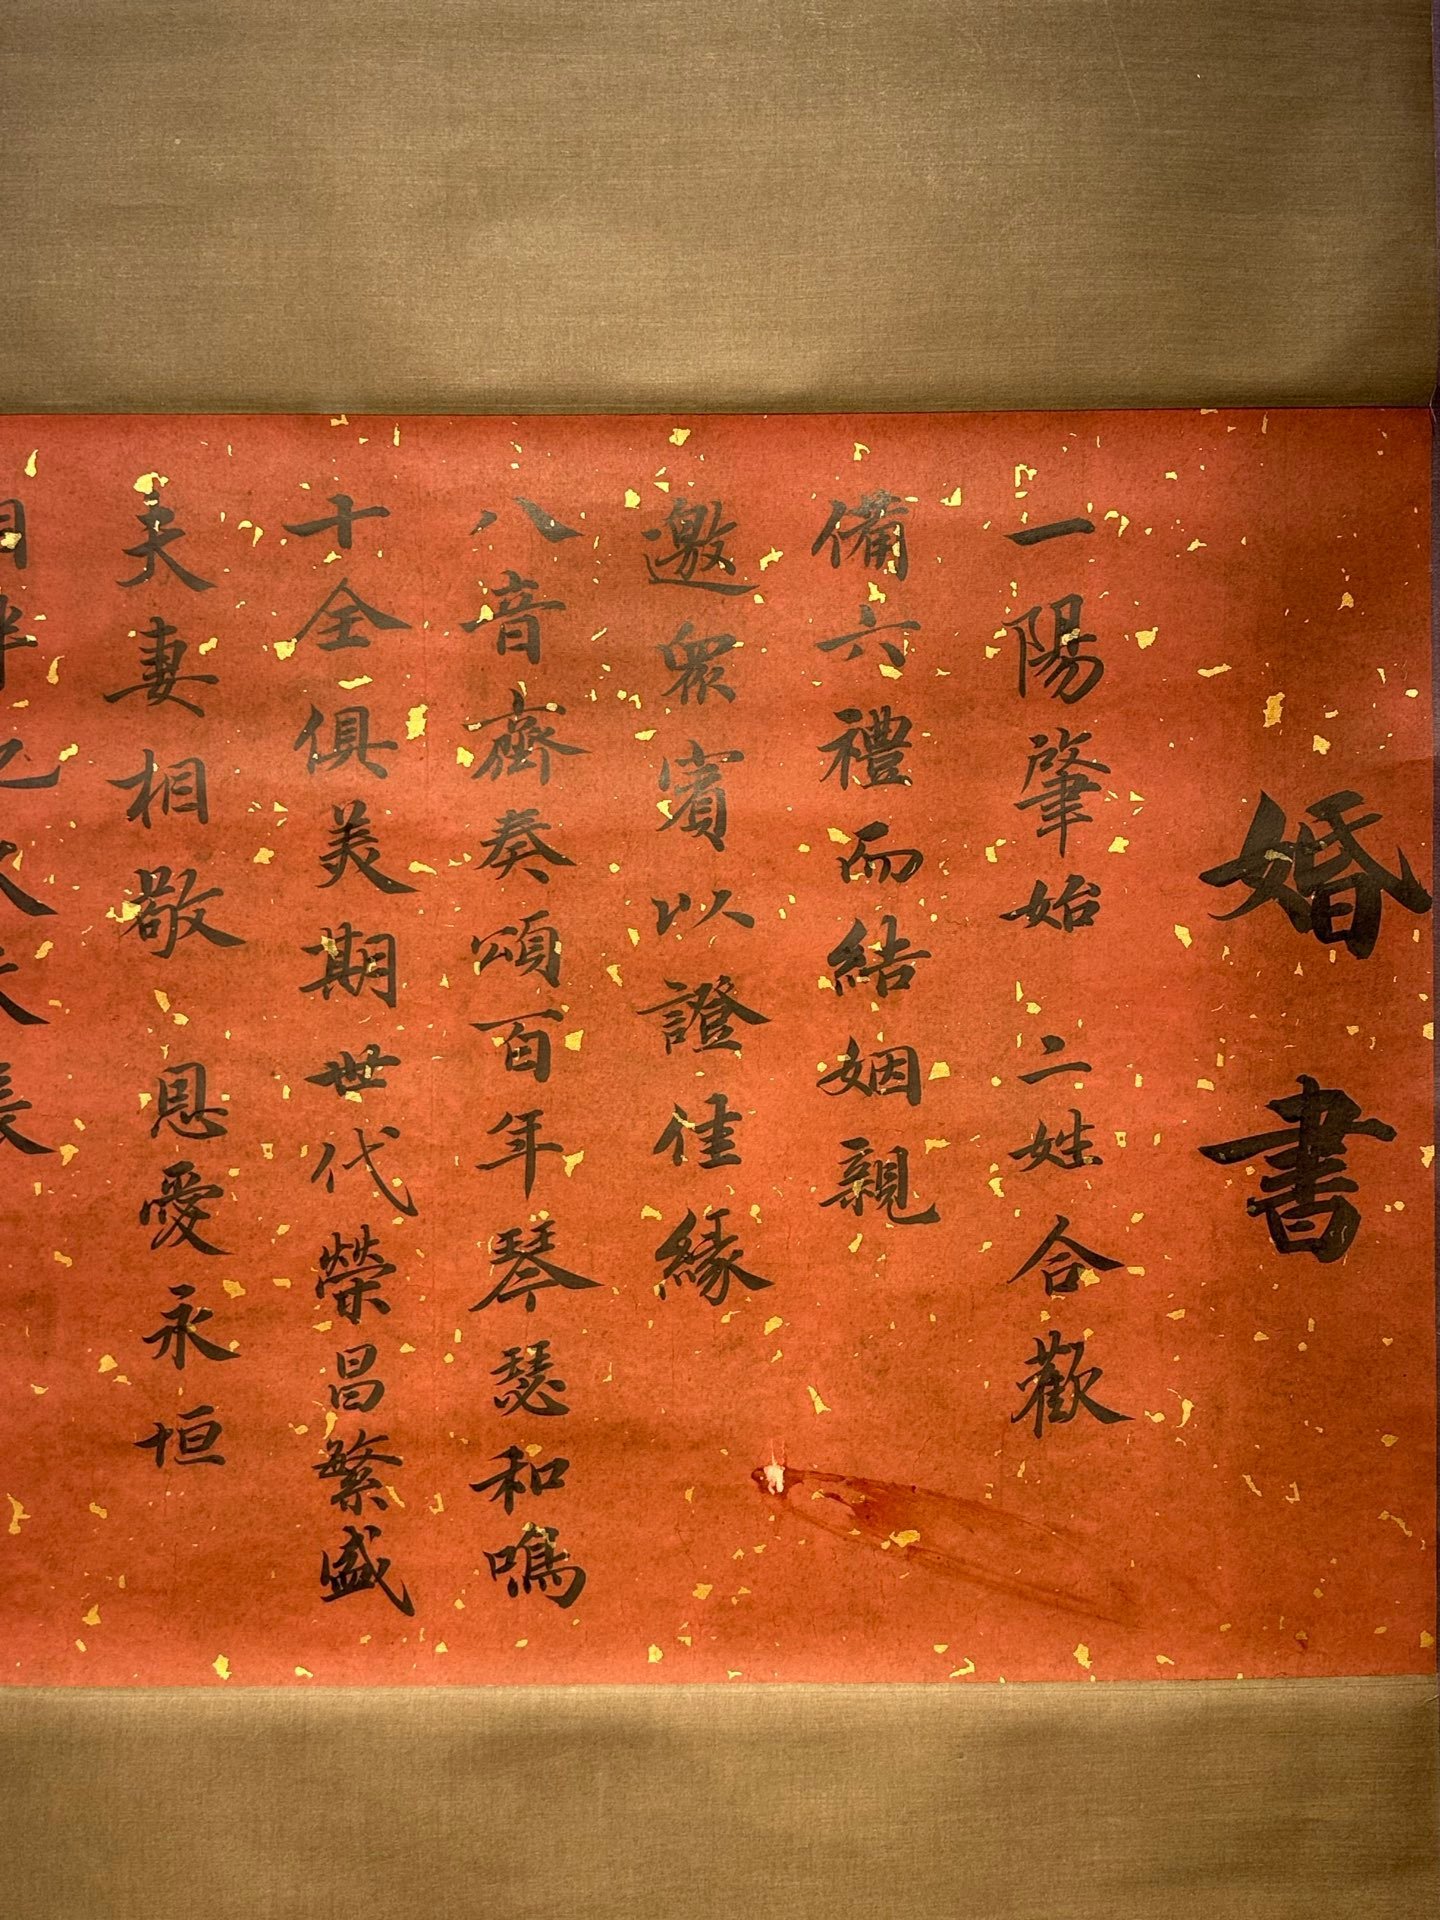 婚書
一陽肇始 二姓合歡
備六禮而結姻親
邀眾賓以證佳緣
八音齊奏頌百年琴瑟和鳴
十全俱美期世代榮昌繁盛
夫妻相敬 恩愛永垣